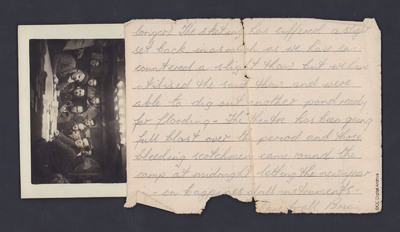 longer. The skating has suffered a slight
set back inasmuch as we have en-
countered a slight thaw but we have
utilised the said thaw and were
able to dig out another pond ready
for flooding - The theatre has been going
full blast over the period and those
bleeding scotchmen came round the
camp at midnight letting the new year
in - on bagpipes & all instruments -